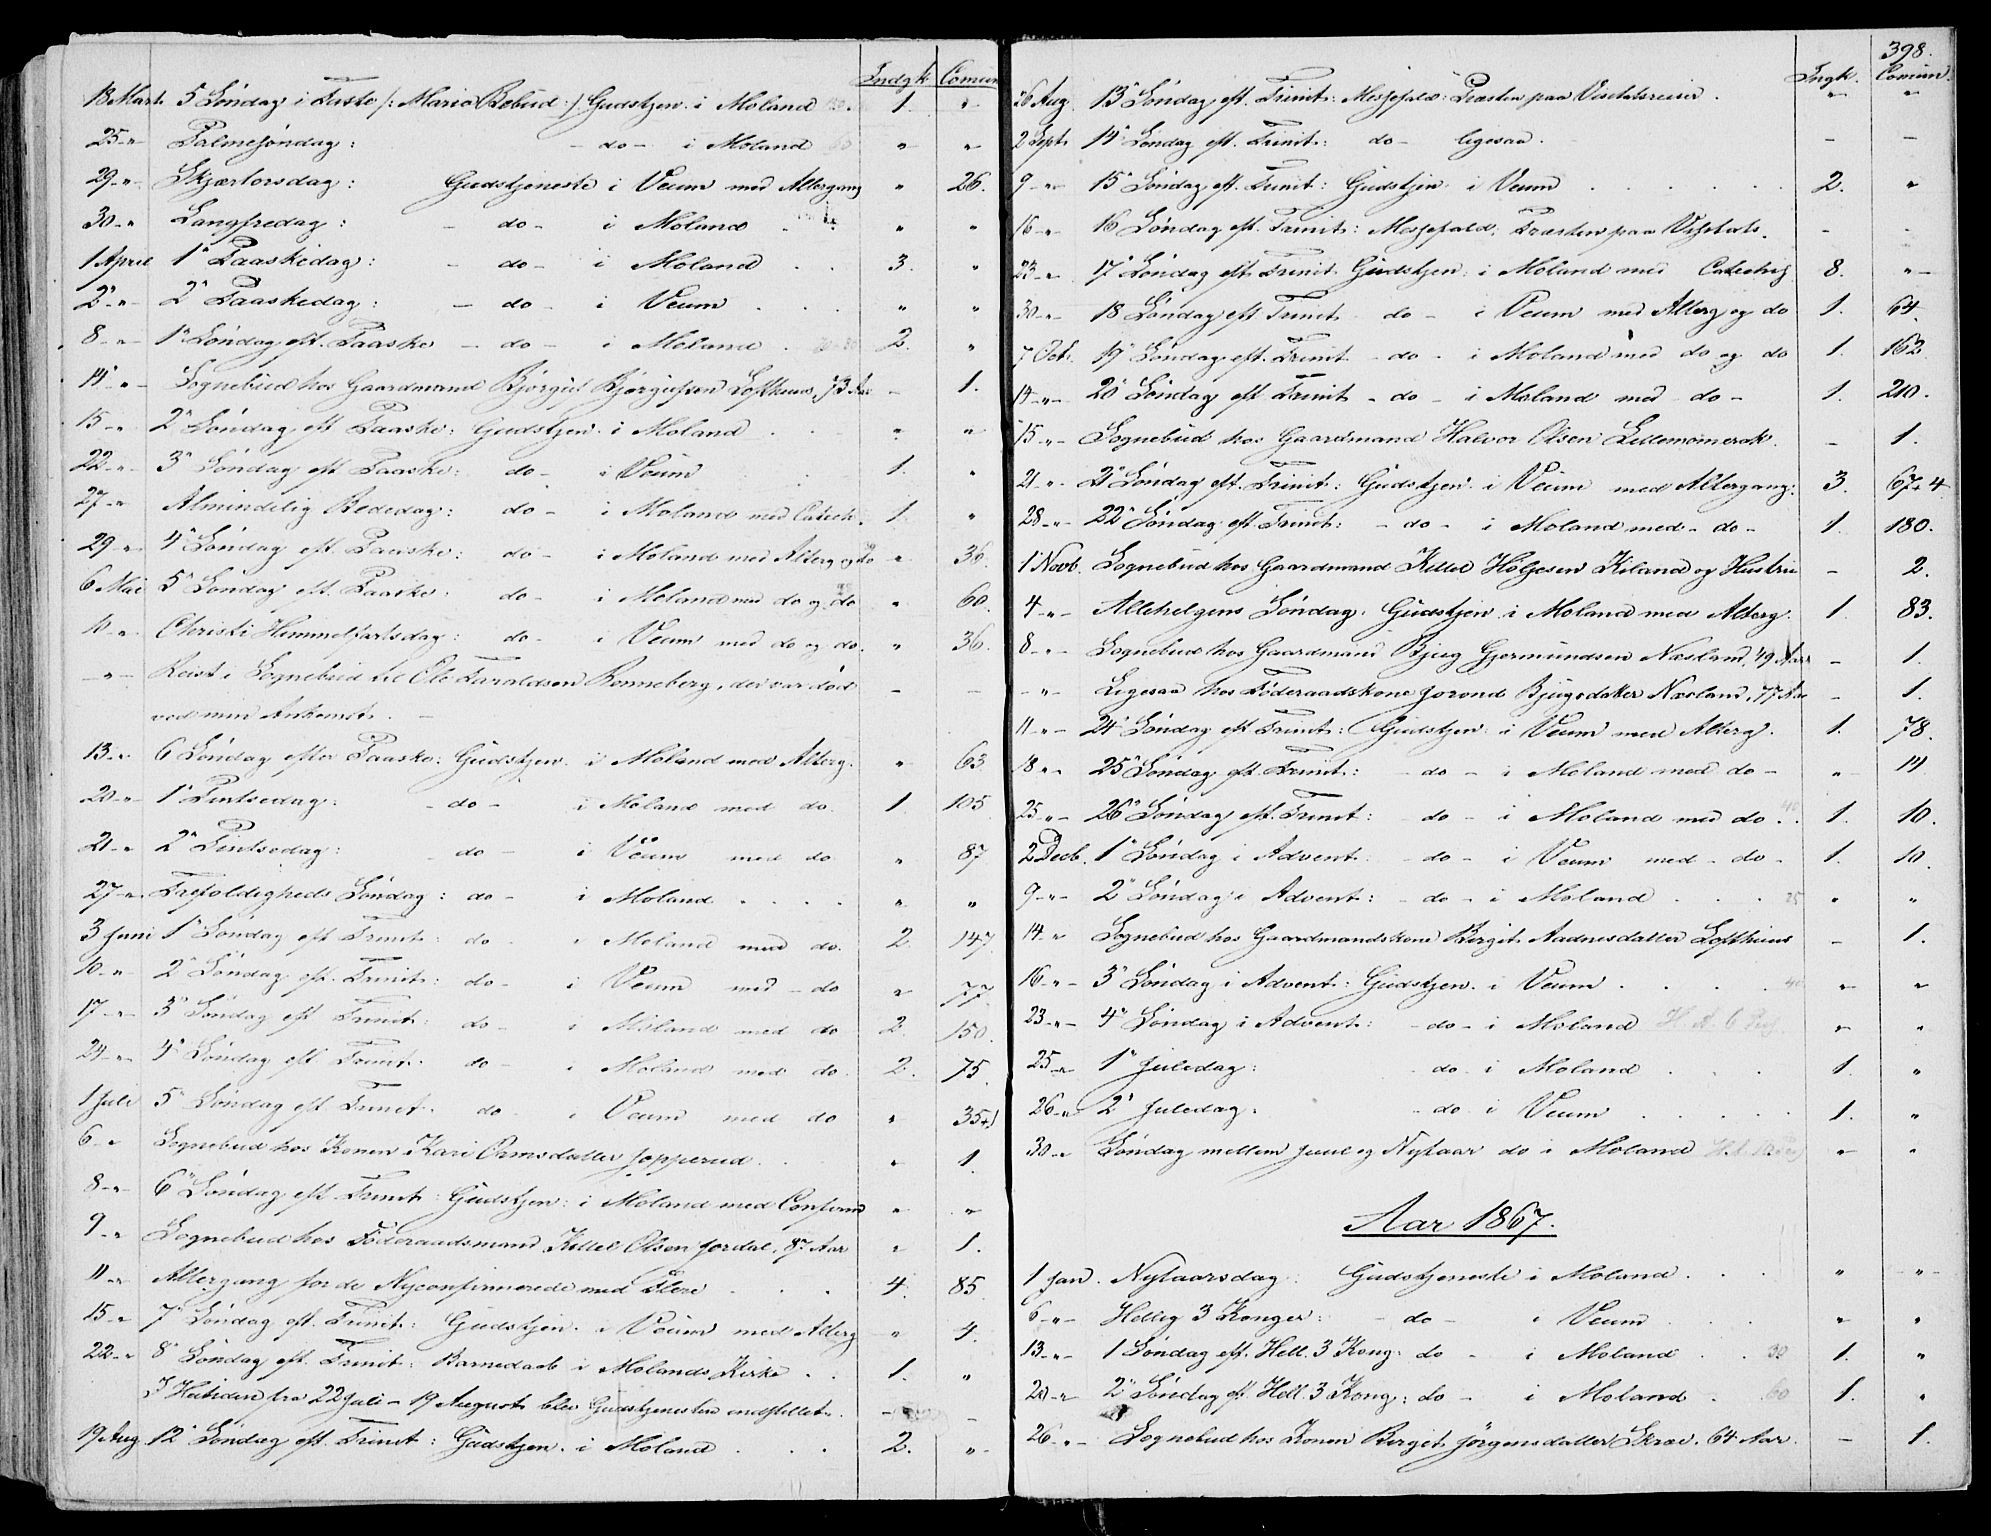 Indgk. Comun.
18 Marts 5 Søndag i Faste /: Mariæ Bebud :/ Gudstjen. i Moland 1. "
25 - " - Palmesøndag: - do - i Moland " "
29 - " - Skjærtorsdag: Gudstjeneste i Veum med Altergang " 26.
30 - " Langfredag: - do - i Moland " "
1 April 1ste Paaskedag: - do - i Moland . . 3. "
2 - " 2den Paaskedag: - do - i Veum . . . " "
8 - " - 1ste Søndag eft. Paaske - do - i Moland . 2. "
14 - " - Sognebud hos Gaardmand Bjørgus Bjørgufsen Lofthuus, 73 Aar - 1.
15 - " 2den Søndag eft Paaske: Gudstjen. i Moland . . " "
22 - " 3die Søndag eft Paaske: do - i Veum . . 1. "
27 - " Almindelig Bededag: do - i Moland med Catech. 1. "
29 - " 4de Søndag eft. Paaske: do - i Moland med Alterg. og do " 36.
6 Mai 5te Søndag eft. Paaske: do - i Moland med do og do " 60.
10 - " Christi Himmelfartsdag: do - i Veum med do og do. " 36.
- " - Reist i Sognebud til Ole Taraldsen Renneberg, der var død - - 
ved min Ankomst. -
13 - " 6te Søndag efter Paaske: Gudstjen. i Moland med Alterg. " 63.
20 - " 1ste Pintsedag: - do - i Moland med do. 1. 105
21 - " 2den Pintsedag: - do - i Veum med do " 87
27 - " Trefoldigheds Søndag: do - i Moland . . . . " "
3 Juni 1ste Søndag eft Trinit: do - i Moland med do. 2. 147
10 - " 2den Søndag eft. Trinit: do - i Veum med - do " 77.
17 - " 3die Søndag eft Trinit: do - i Moland med do 2. 150.
24 - " 4de Søndag eft Trinit: do - i Moland med do. 2. 75.
1 Juli 5te Søndag eft Trinit. do i Veum med do " 35+1
6 - " Sognebud hos Konen Kari Ormsdatter Jopperud . . " 1.
8 - " 6te Søndag eft Trinit: Gudstjen: i Moland med Confirmd " "
9 - " Sognebud hos Föderaadsmand Kittel Olsen Jordal, 87 Aar " 1.
11 - " Altergang for de Nyconfirmerede med Flere . . . 4. 85.
15 - " 7de Søndag eft. Trinit: Gudstjen. i Veum med Alterg " 4.
22 - " 8de Søndag eft. Trinit: Barnedaab i Molands Kirke . . 1. "
I Hvitiden fra 22 Juli - 19 August blev Gudstjenesten indstillet. - -
19 Aug. 12te Søndag eft. Trinit: Gudstjen. i Moland . . . 2. "
398.
Ingk. Comun.
26 Aug. 13de Søndag eft. Trinit: Messefald: Præsten paa Visitatsreiser. " "
2 Septr 14de Søndag eft. Trinit: do - ligesaa. - -
9 - " - 15de Søndag eft. Trinit: Gudstjen: i Veum . . . . . . 2. "
16 - " 16 Søndag eft. Trinit: Messefald: Præsten paa Visitats. - -
23 - " 17de Søndag eft Trinit. Gudstjen: i Moland med Catechis. 8. " -
30 - " - 18 Søndag eft Trinit do - i Veum med Alterg og do 1. 64.
7 Oct. 19de Søndag eft. Trinit - do - i Moland med do og do 1. 162
14 - " - 20de Søndag eft Trinit - do - i Moland med do - 1. 210.
15 - " - Sognebud hos Gaardmand Halvor Olsen Lillemomerak. - 1.
21 - " - 21de Søndag eft. Trinit: Gudstjen. i Veum med Altergang. 3. 67+4
28 - " - 22de Søndag eft Trinit: - do - i Moland med - do - 1. 180.
1 Novb. Sognebud hos Gaardmand Kittel Holjesen Kiland og Hustru - 2.
4 - " - Allehelgens Søndag. Gudstjen i Moland med Alterg. 1. 83.
8 - " - Sognebud hos Gaardmand Bjug Gjermundsen Næsland, 49 Aar - 1.
- " - Ligesaa hos Føderaadskone Jorond Bjugsdatter Næsland, 77 Aar - 1.
11 - " - 24de Søndag eft Trinit: Gudstjen: i Veum med Alterg. 1. 78.
18 - " - 25de Søndag eft Trinit: - do - i Moland med do - " 14
25 - " - 26de Søndag eft. Trinit: - do - i Moland med do . 40 1. 10.
2 Decb. 1ste Søndag i Advent: - do - i Veum med - do - 1. 10.
9 - " - 2den Søndag i Advent: - do - i Moland . . . 25 " "
14 - " Sognebud hos Gaardmandskone Birgit Aadnesdatter Lofthuus - 1.
16 - " - 3die Søndag i Advent: Gudstjen. i Veum . . . . 40 " "
23 - " - 4de Søndag i Advent: - do - i Moland " "
25 - " 1ste Juledag: do i Moland . . . 1. "
26 - " 2den Juledag: do i Veum . . . . . 1. "
30 - " Søndag mellem Juul og Nytaar do i Moland " "
Aar 1867.
1 Jan. Nytaarsdag: Gudstjeneste i Moland . . . " " -
6 - " - Hellig 3 Konger: - do - i Veum . . . " "
13 - " - 1 Søndag eft. Hell. 3 Kong: do - i Moland . . 30 1. "
20 - " 2den Søndag eft. Hell. 3 Kong: do - i Moland . 60 1. "
26 - " - Sognebud hos Konen Birgit Jörgensdatter Skræi. 64 Aar. - 1.